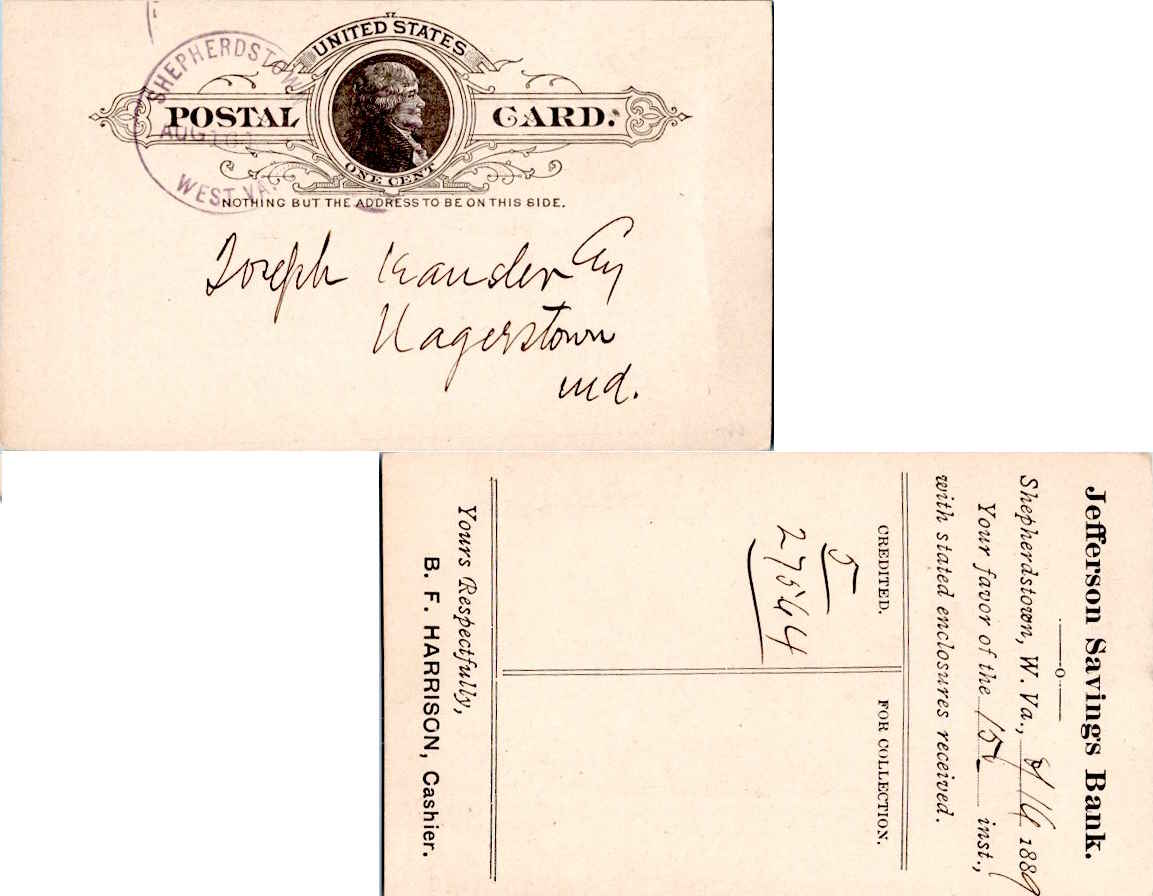 UNITED STATES
POSTAL CARD.
ONE CENT
NOTHING BUT THE ADDRESS TO BE ON THIS SIDE.
SHEPHERDSTOWN
AUG 16
WEST VA.
Joseph
Hagerstown
Md.
Jefferson Savings Bank.
Shepherdstown, W. Va., 8/16 1889
Your favor of the 15 inst.,
with stated enclosures received.
CREDITED. FOR COLLECTION.
5
27544
Yours Respectfully,
B. F. HARRISON, Cashier.